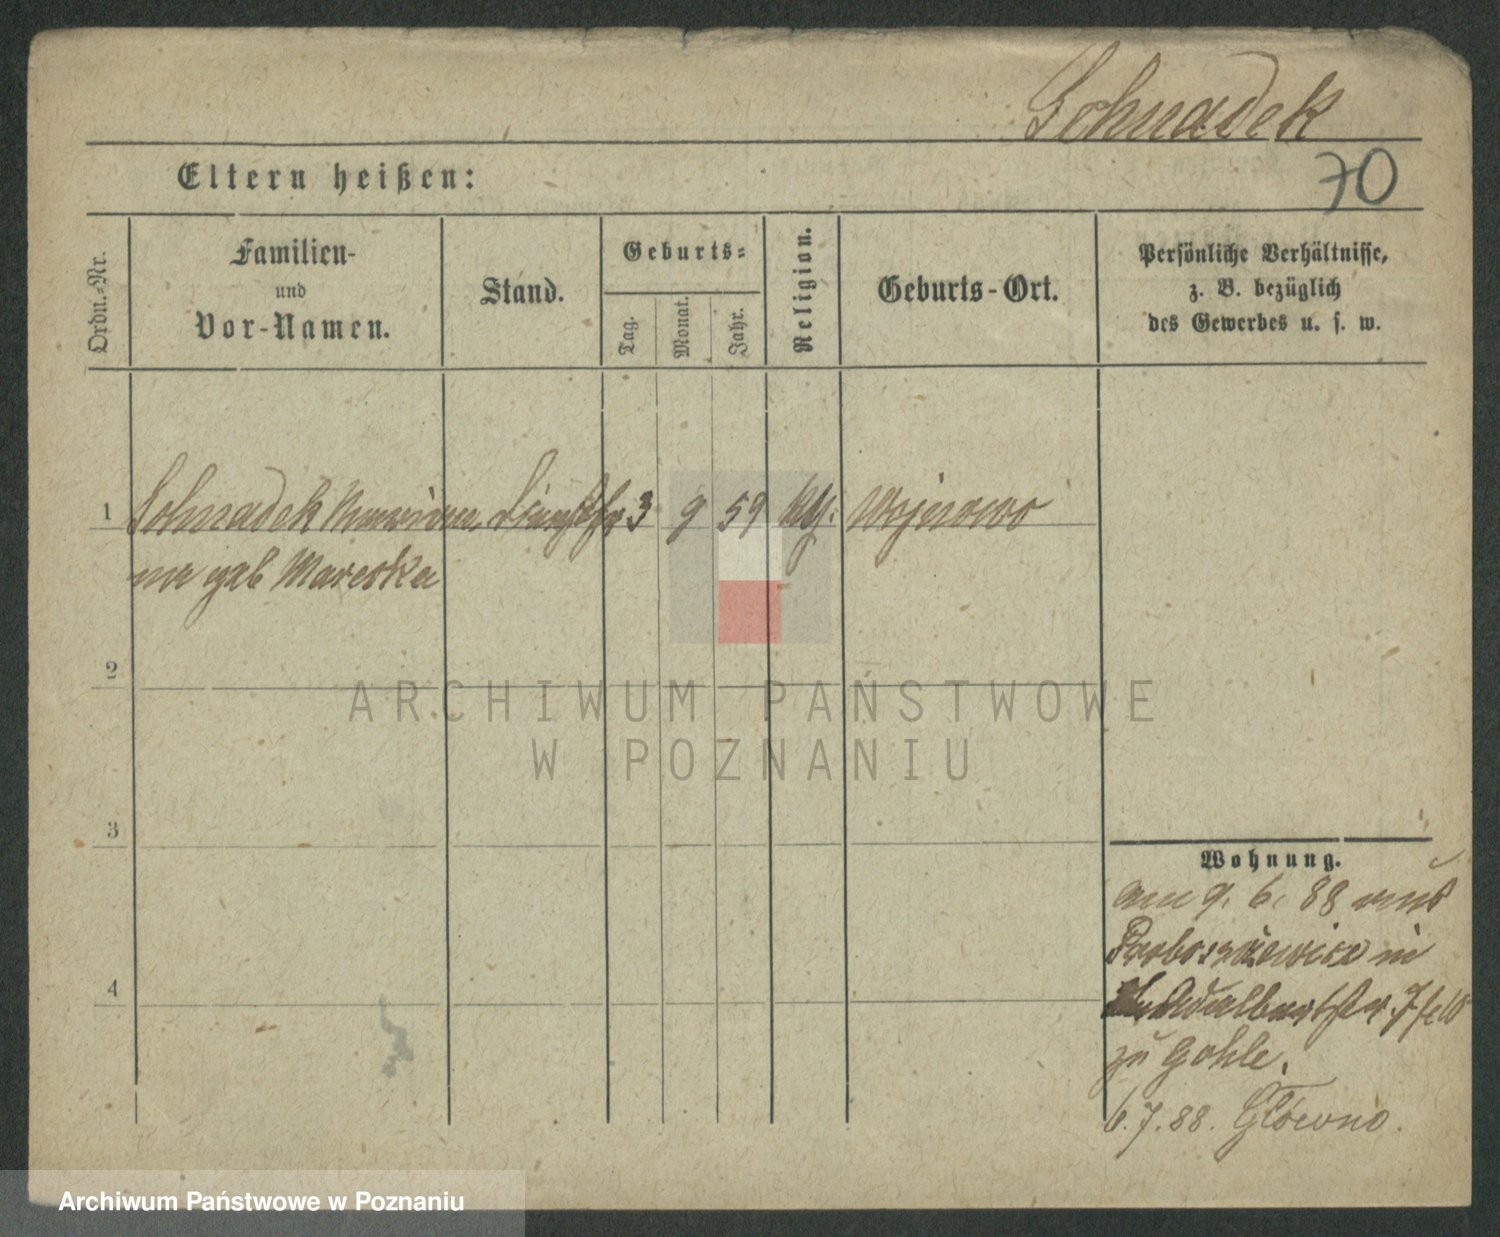 Schnadek
70
Eltern heißen:
Ordn.-Nr.
Familien-
und
Vor-Namen.
Stand.
Geburts-
Tag.
Monat.
Jahr.
Religion.
Geburts-Ort.
Persönliche Verhältnisse,
z. B. bezüglich
des Gewerbes u. s. w.
1 Schnadek Marian 3 9 59 Wojnowo
na geb Mareska
2
ARCHIWUM PAŃSTWOWE
W POZNANIU
3
Wohnung.
am 9. 6. 88
in
4
Adalbertstr. 7
zu Gohle.
6.7.88. Główno.
Archiwum Państwowe w Poznaniu